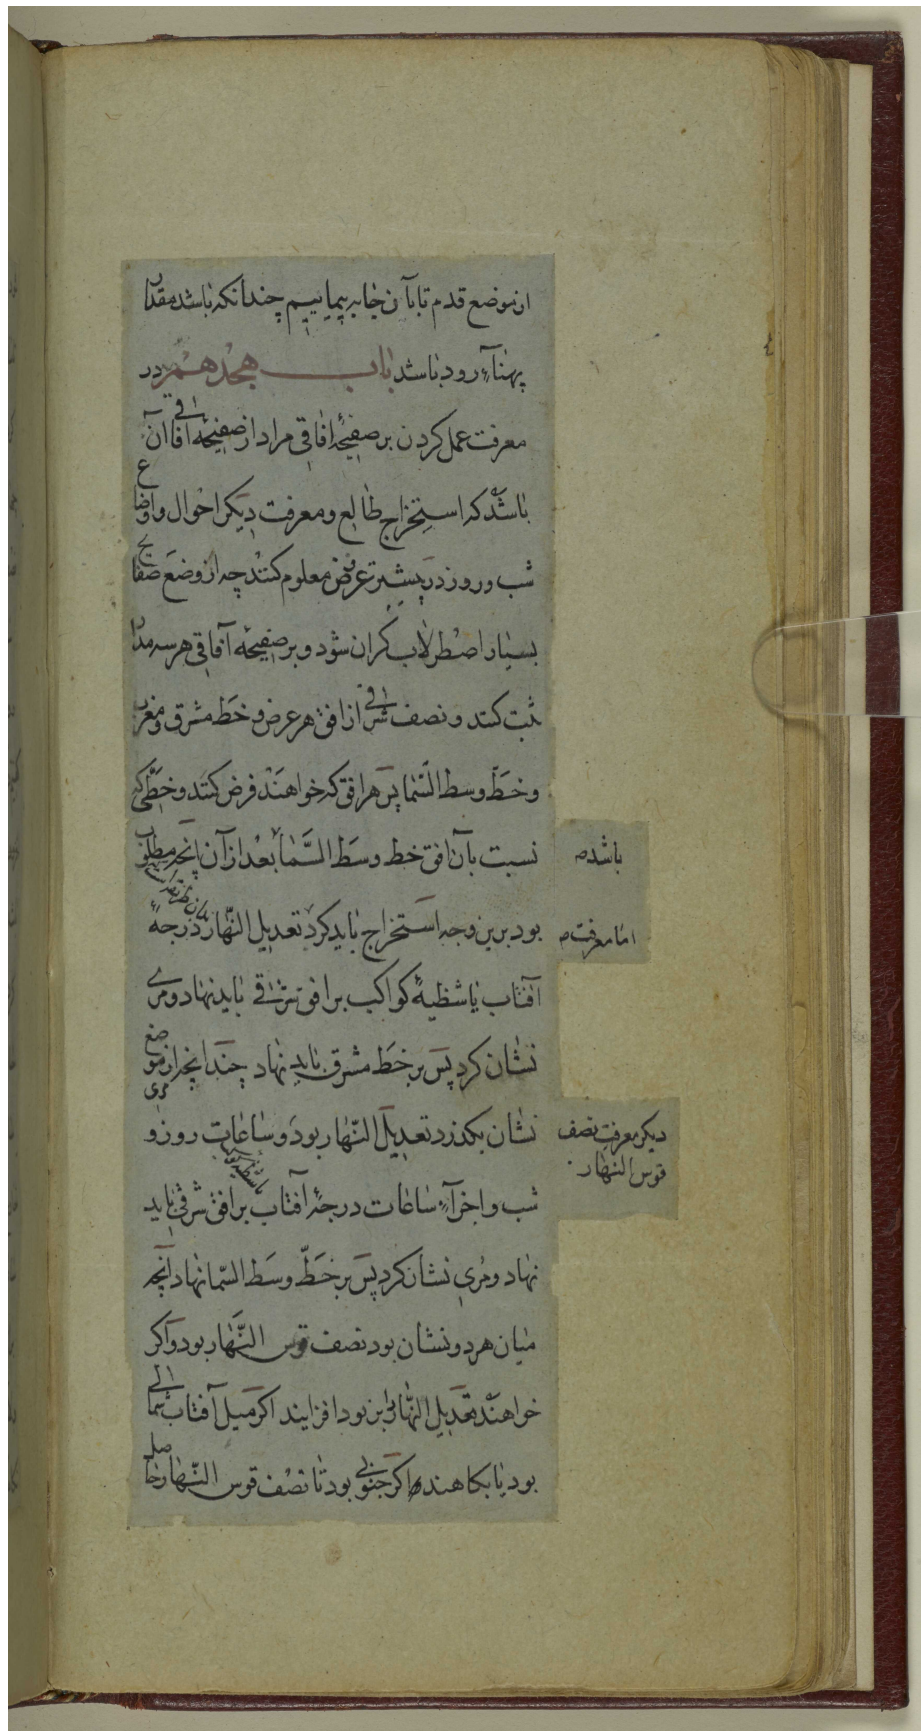 از موضع قدم تا بآن جا به پیماییم چندانکه باشد مقدار
پهناء رود باشد باب هجدهم در
معرفت عمل کردن بر صفیحهٔ افاقی مراد از صفیحهٔ افاقی آن
باشد که استخراج طالع و معرفت دیکر احوال و اوضاع
شب و روز در بیشتر عروض معلوم کنند چه از وضع صفایح
بسیار اصطرلاب کران شود و بر صفیحه آفاقی هر سه مدار
ثبت کنند و نصف شرقی از افق هر عرض و خط مشرق و مغرب
و خطّ وسط السّما پس هر افق که خواهند فرض کنند و خطّی که
نسبت بآن افق خط وسط السّما بعد از آن آنچه مطلوب
باشد
بود برین وجه استخراج باید کرد تعدیل النّهار درجهٔ
اما معرفت
آفتاب یا شظیهٔ کواکب بر افق شرقی باید نهاد و مری
نشان کرد پس بر خط مشرق باید نهاد چندانچه از موضع
نشان بکذرد تعدیل النّهار بود و ساعات روز و
مری
دیکر معرفت نصف
قوس النهار
شب و اجزآء ساعات درجهٔ آفتاب بر افق شرقی باید
نهاد و مری نشان کرد پس بر خطّ وسط السّما نهاد آنچه
میان هر دو نشان بود نصف قوس النّهار بود و اکر
خواهند تعدیل النّهار برین بود افزایند اکر میل آفتاب شمالی
بود یا بکاهند اکر جنوبی بود تا نصف قوس النّهار حاصل